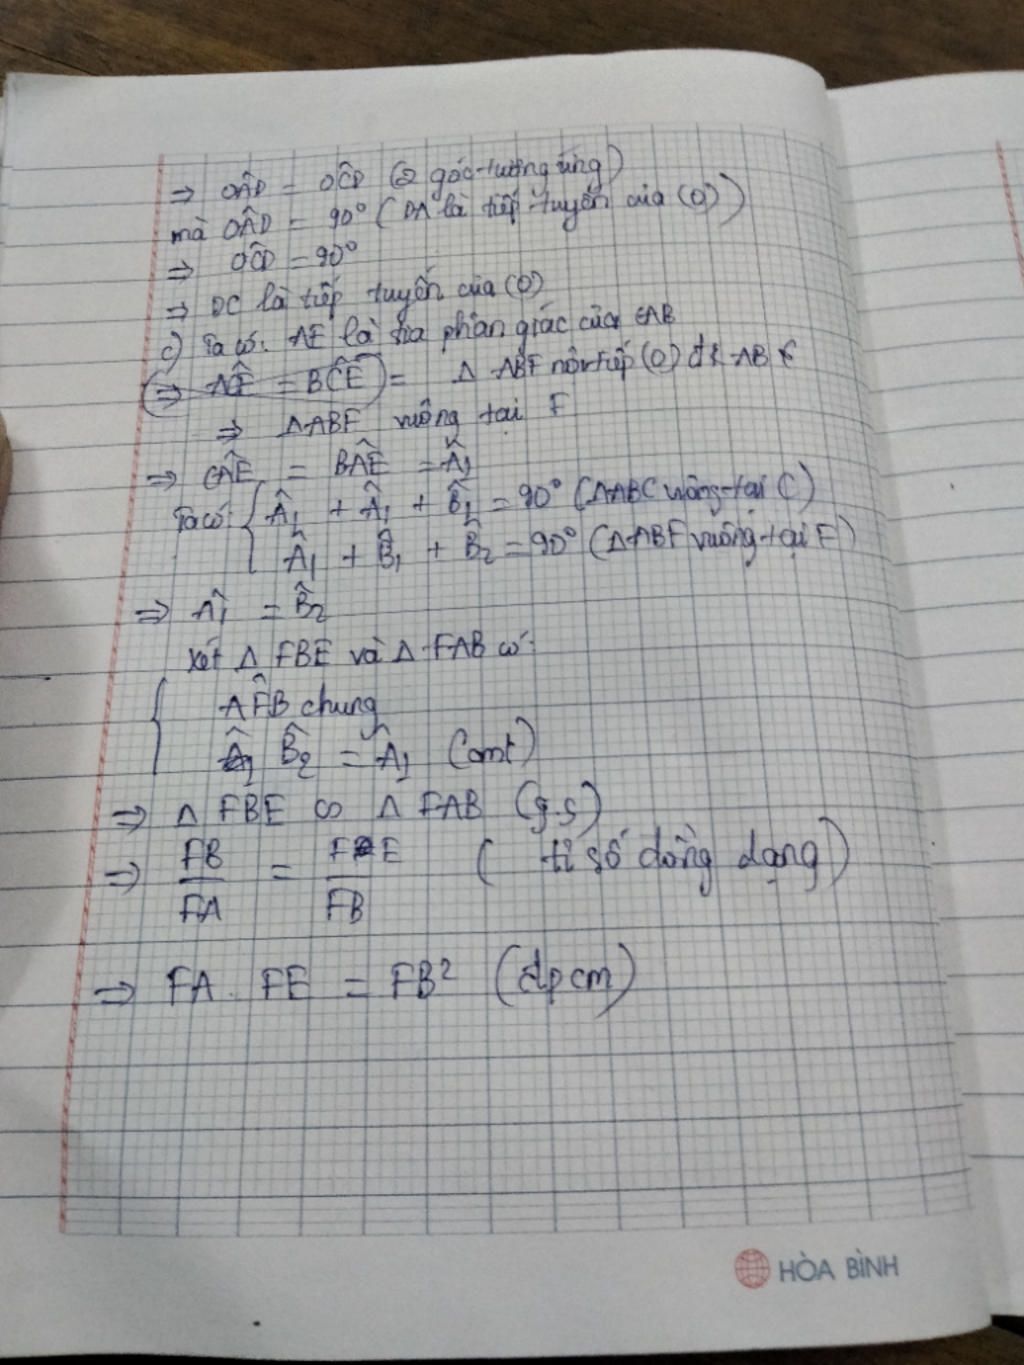 ⇒ OÂD = OĈD (2 góc tương ứng)
mà OÂD = 90° (DA là tiếp tuyến của (O))
⇒ OĈD = 90°
⇒ DC là tiếp tuyến của (O)
c) Ta có: AE là tia phân giác của CAB
⇒ AĈE = BĈE = Δ ABF nội tiếp (O) đk AB
⇒ ΔABF vuông tại F
⇒ CÂE = BÂE = Â1
Ta có: Â1 + Â1 + B̂1 = 90° (ΔABC vuông tại C)
Â1 + B̂1 + B̂2 = 90° (ΔABF vuông tại F)
⇒ Â1 = B̂2
Xét Δ FBE và Δ FAB có:
AF̂B chung
B̂2 = Â1 (cmt)
⇒ Δ FBE ∽ Δ FAB (g.g)
⇒ FB/FA = FE/FB (tỉ số đồng dạng)
⇒ FA . FE = FB² (đpcm)
HÒA BÌNH